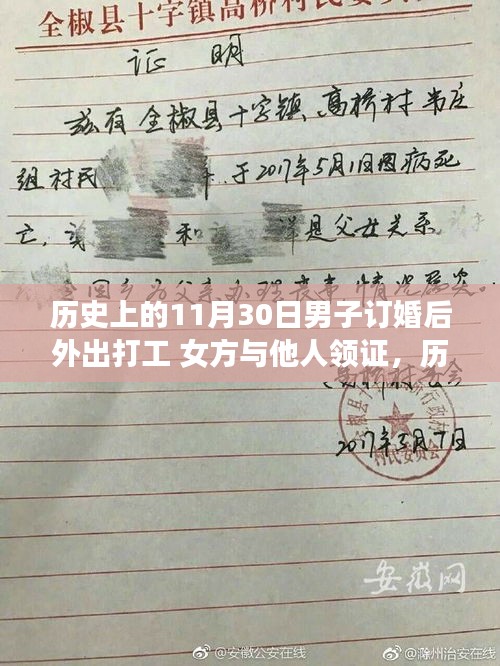 全椒县十字镇高桥村民委员会
证 明
兹有全椒县十字镇高桥村韦庄
组村民 于2017年5月1日因病死
亡,该 和 是父女关系
回乡为父亲办理丧事 情况属实
历史上的11月30日男子订婚后
外出打工 女方与他人领证,历
2017年5月7日
村民委员会
安徽网
@安徽公安在线
@滁州治安在线